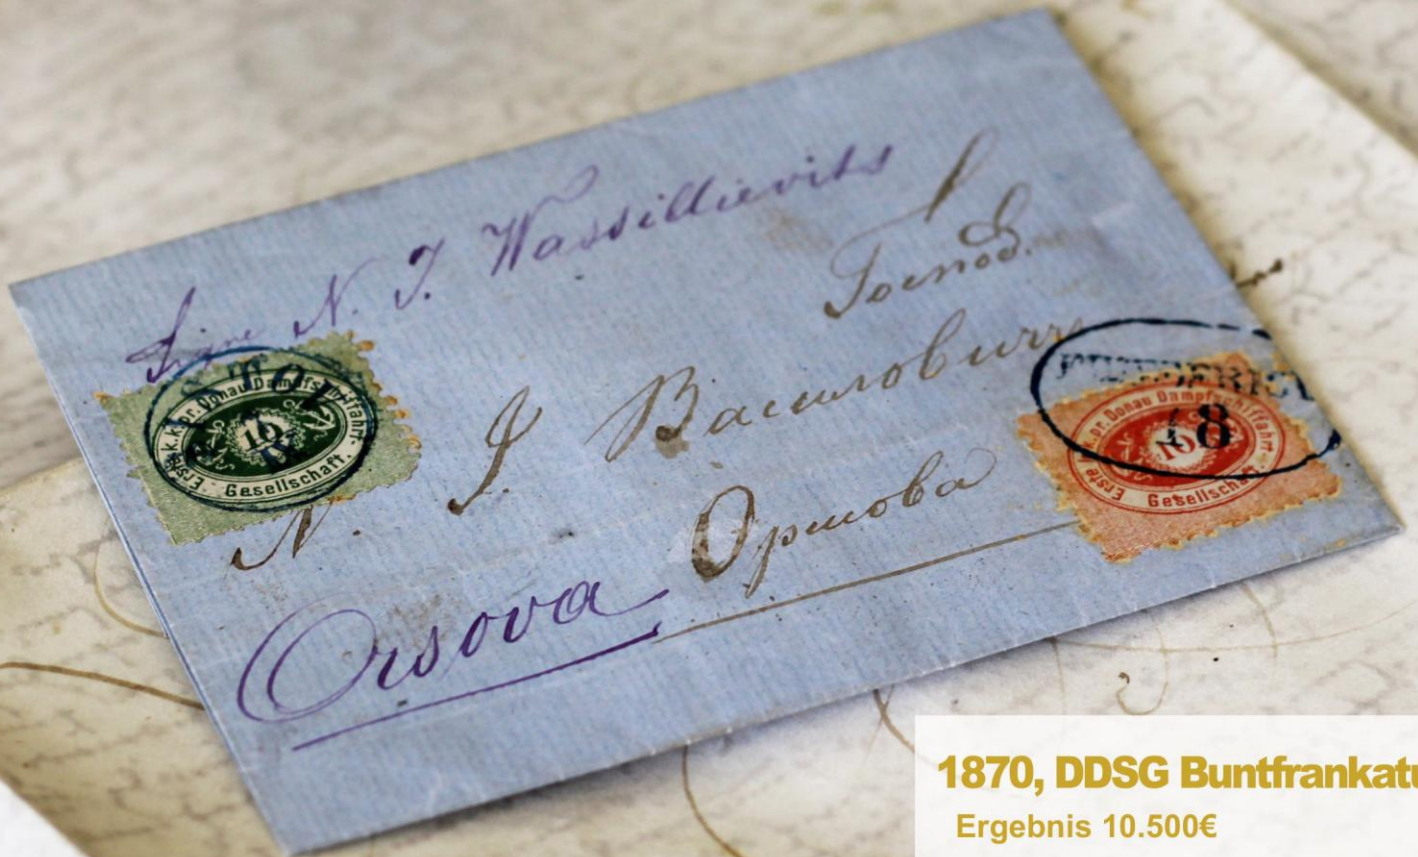 Signr N. J. Wassillievits
Господ.
N. J. Василовичу
Оршова
Orsova
Erste k.k. pr. Donau Dampfschiffahrt
10
Gesellschaft.
Erste k.k. pr. Donau Dampfschiffahrt
10
Gesellschaft.
18
1870, DDSG Buntfrankatu
Ergebnis 10.500€